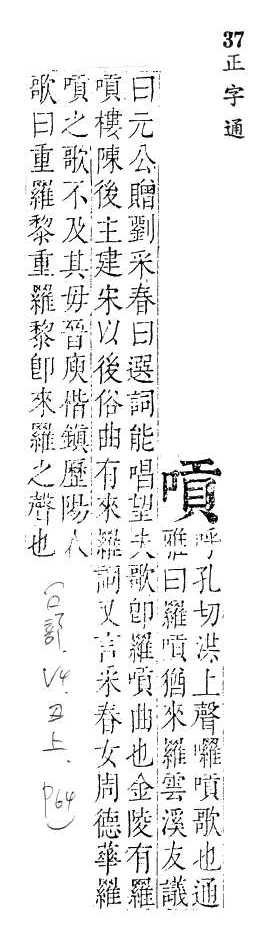 37 正字通
嗊
呼孔切洪上聲囉嗊歌也通
雅曰羅嗊猶來羅雲溪友議
曰元公贈劉采春曰選詞能唱望夫歌卽羅嗊曲也金陵有羅
嗊樓陳後主建宋以後俗曲有來羅詞又言采春女周德華羅
嗊之歌不及其毋晉庾楷鎮歷陽人
歌曰重羅黎重羅黎卽來羅之聲也
(口部. V4. 丑上. P64)